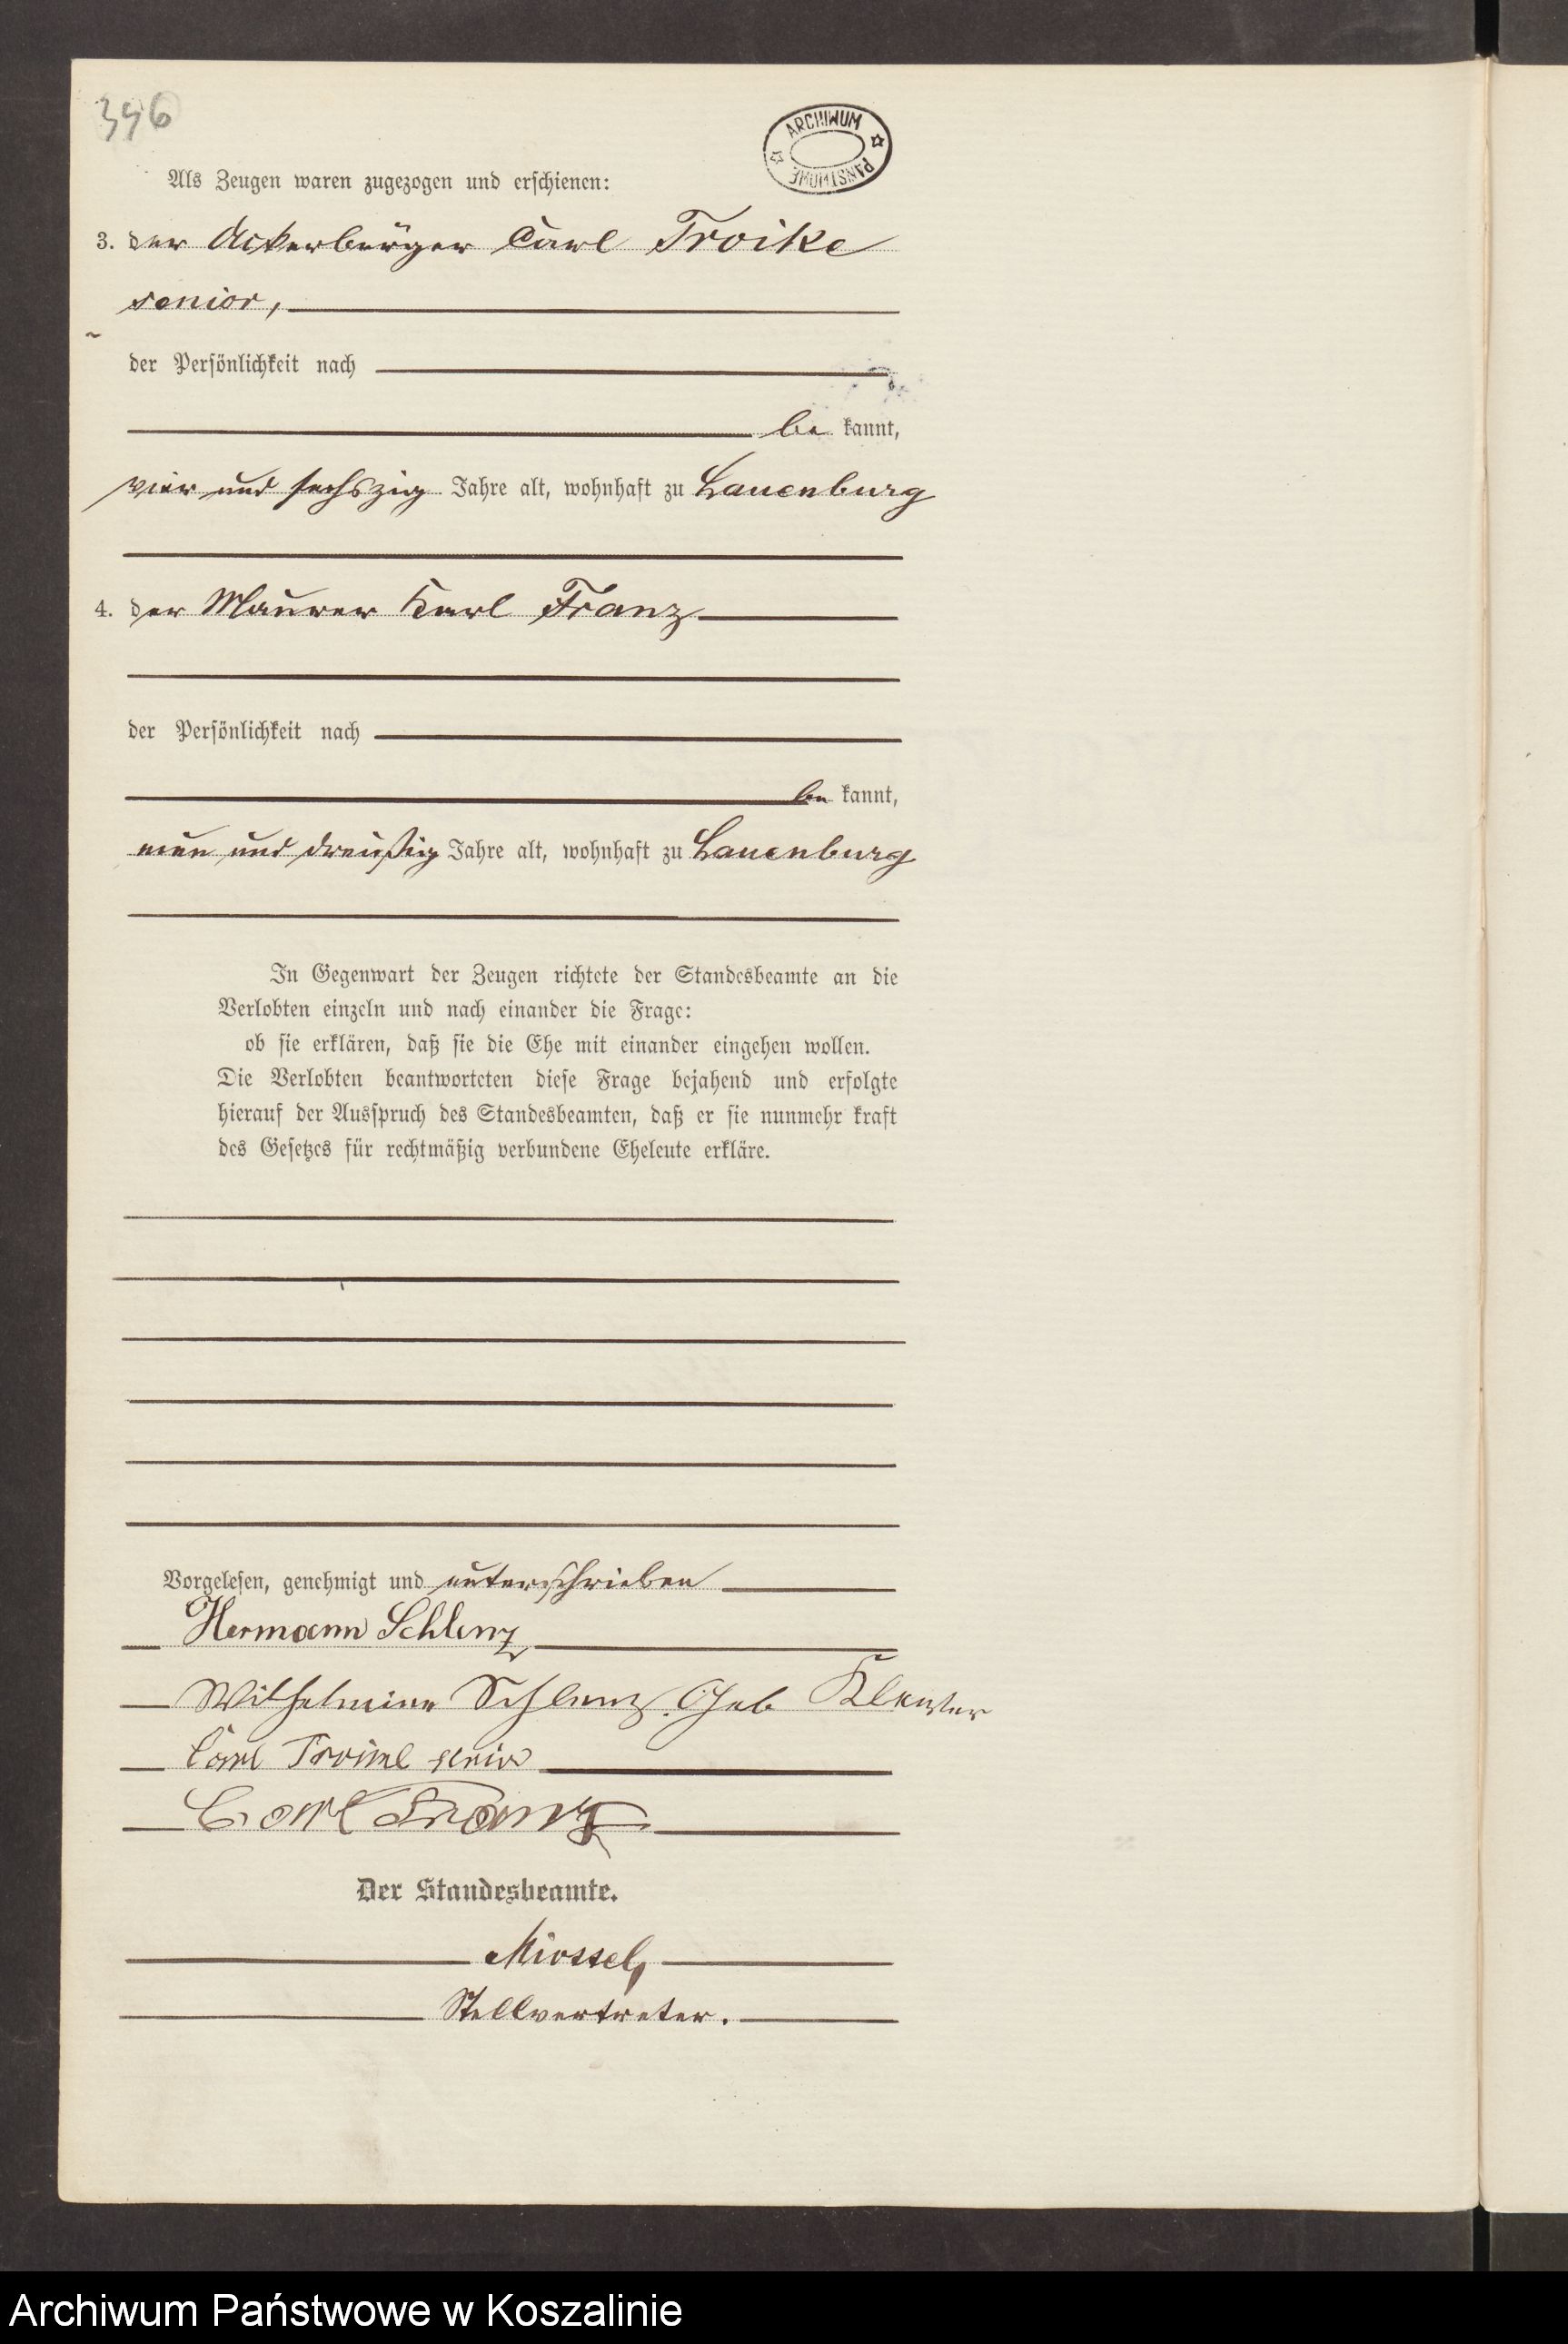 396
ARCHIWUM PAŃSTWOWE
Als Zeugen waren zugezogen und erschienen:
3. der Ackerbürger Carl Troike
senior,
der Persönlichkeit nach
be kannt,
vier und sechszig Jahre alt, wohnhaft zu Lauenburg
4. der Maurer Karl Franz
der Persönlichkeit nach
be kannt,
neun und dreißig Jahre alt, wohnhaft zu Lauenburg
In Gegenwart der Zeugen richtete der Standesbeamte an die
Verlobten einzeln und nach einander die Frage:
ob sie erklären, daß sie die Ehe mit einander eingehen wollen.
Die Verlobten beantworteten diese Frage bejahend und erfolgte
hierauf der Ausspruch des Standesbeamten, daß er sie nunmehr kraft
des Gesetzes für rechtmäßig verbundene Eheleute erkläre.
Vorgelesen, genehmigt und unterschrieben
Hermann Schlenz
Wilhelmine Schlenz. Geb
Carl
Carl Franz
Der Standesbeamte.
Stellvertreter.
Archiwum Państwowe w Koszalinie